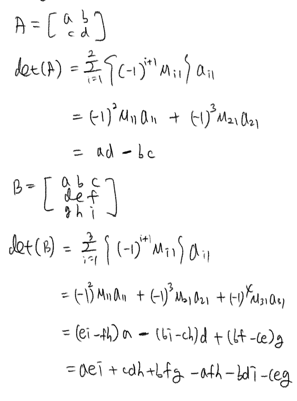 A = [a b
c d]
det(A) = Σ²ᵢ₌₁ {(-1)ⁱ⁺¹ Mᵢ₁} aᵢ₁
= (-1)² M₁₁ a₁₁ + (-1)³ M₂₁ a₂₁
= ad - bc
B = [a b c
d e f
g h i]
det(B) = Σ³ᵢ₌₁ {(-1)ⁱ⁺¹ Mᵢ₁} aᵢ₁
= (-1)² M₁₁ a₁₁ + (-1)³ M₂₁ a₂₁ + (-1)⁴ M₃₁ a₃₁
= (ei - fh) a - (bi - ch) d + (bf - ce) g
= aei + cdh + bfg - afh - bdi - ceg